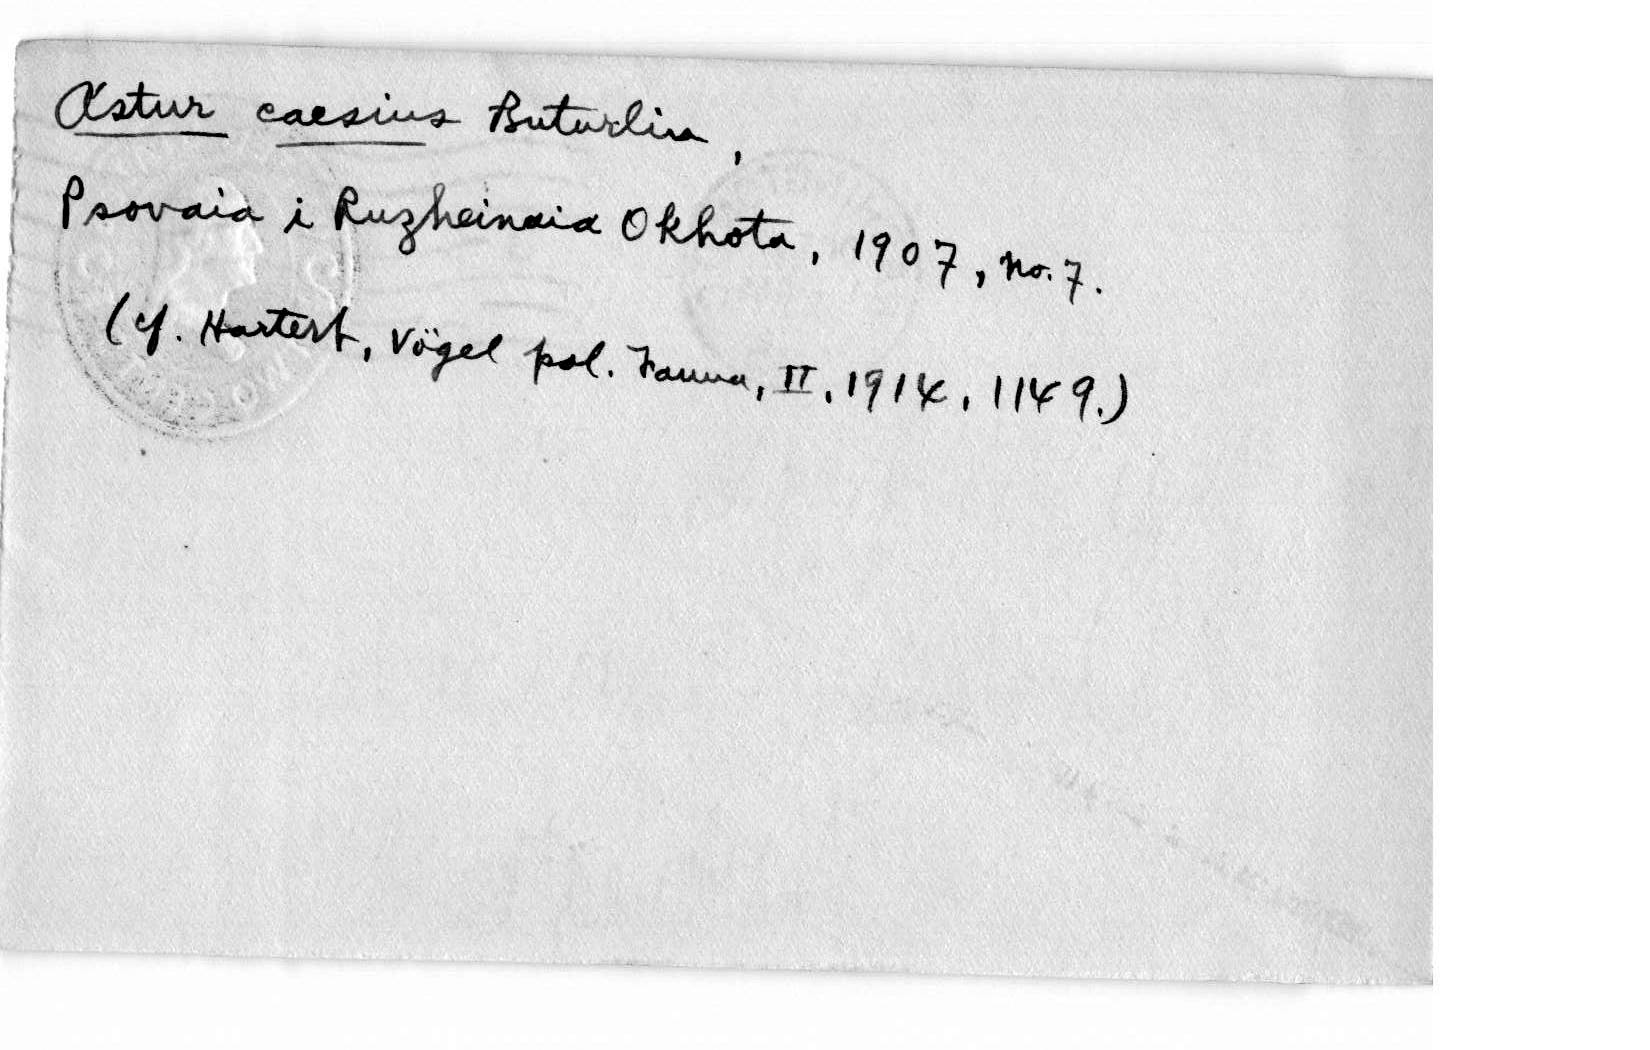 Astur caesius Buturlin,
Psovaia i Ruzheinaia Okhota, 1907, no. 7.
(cf. Hartert, Vögel pal. Fauna, II, 1914, 1149.)